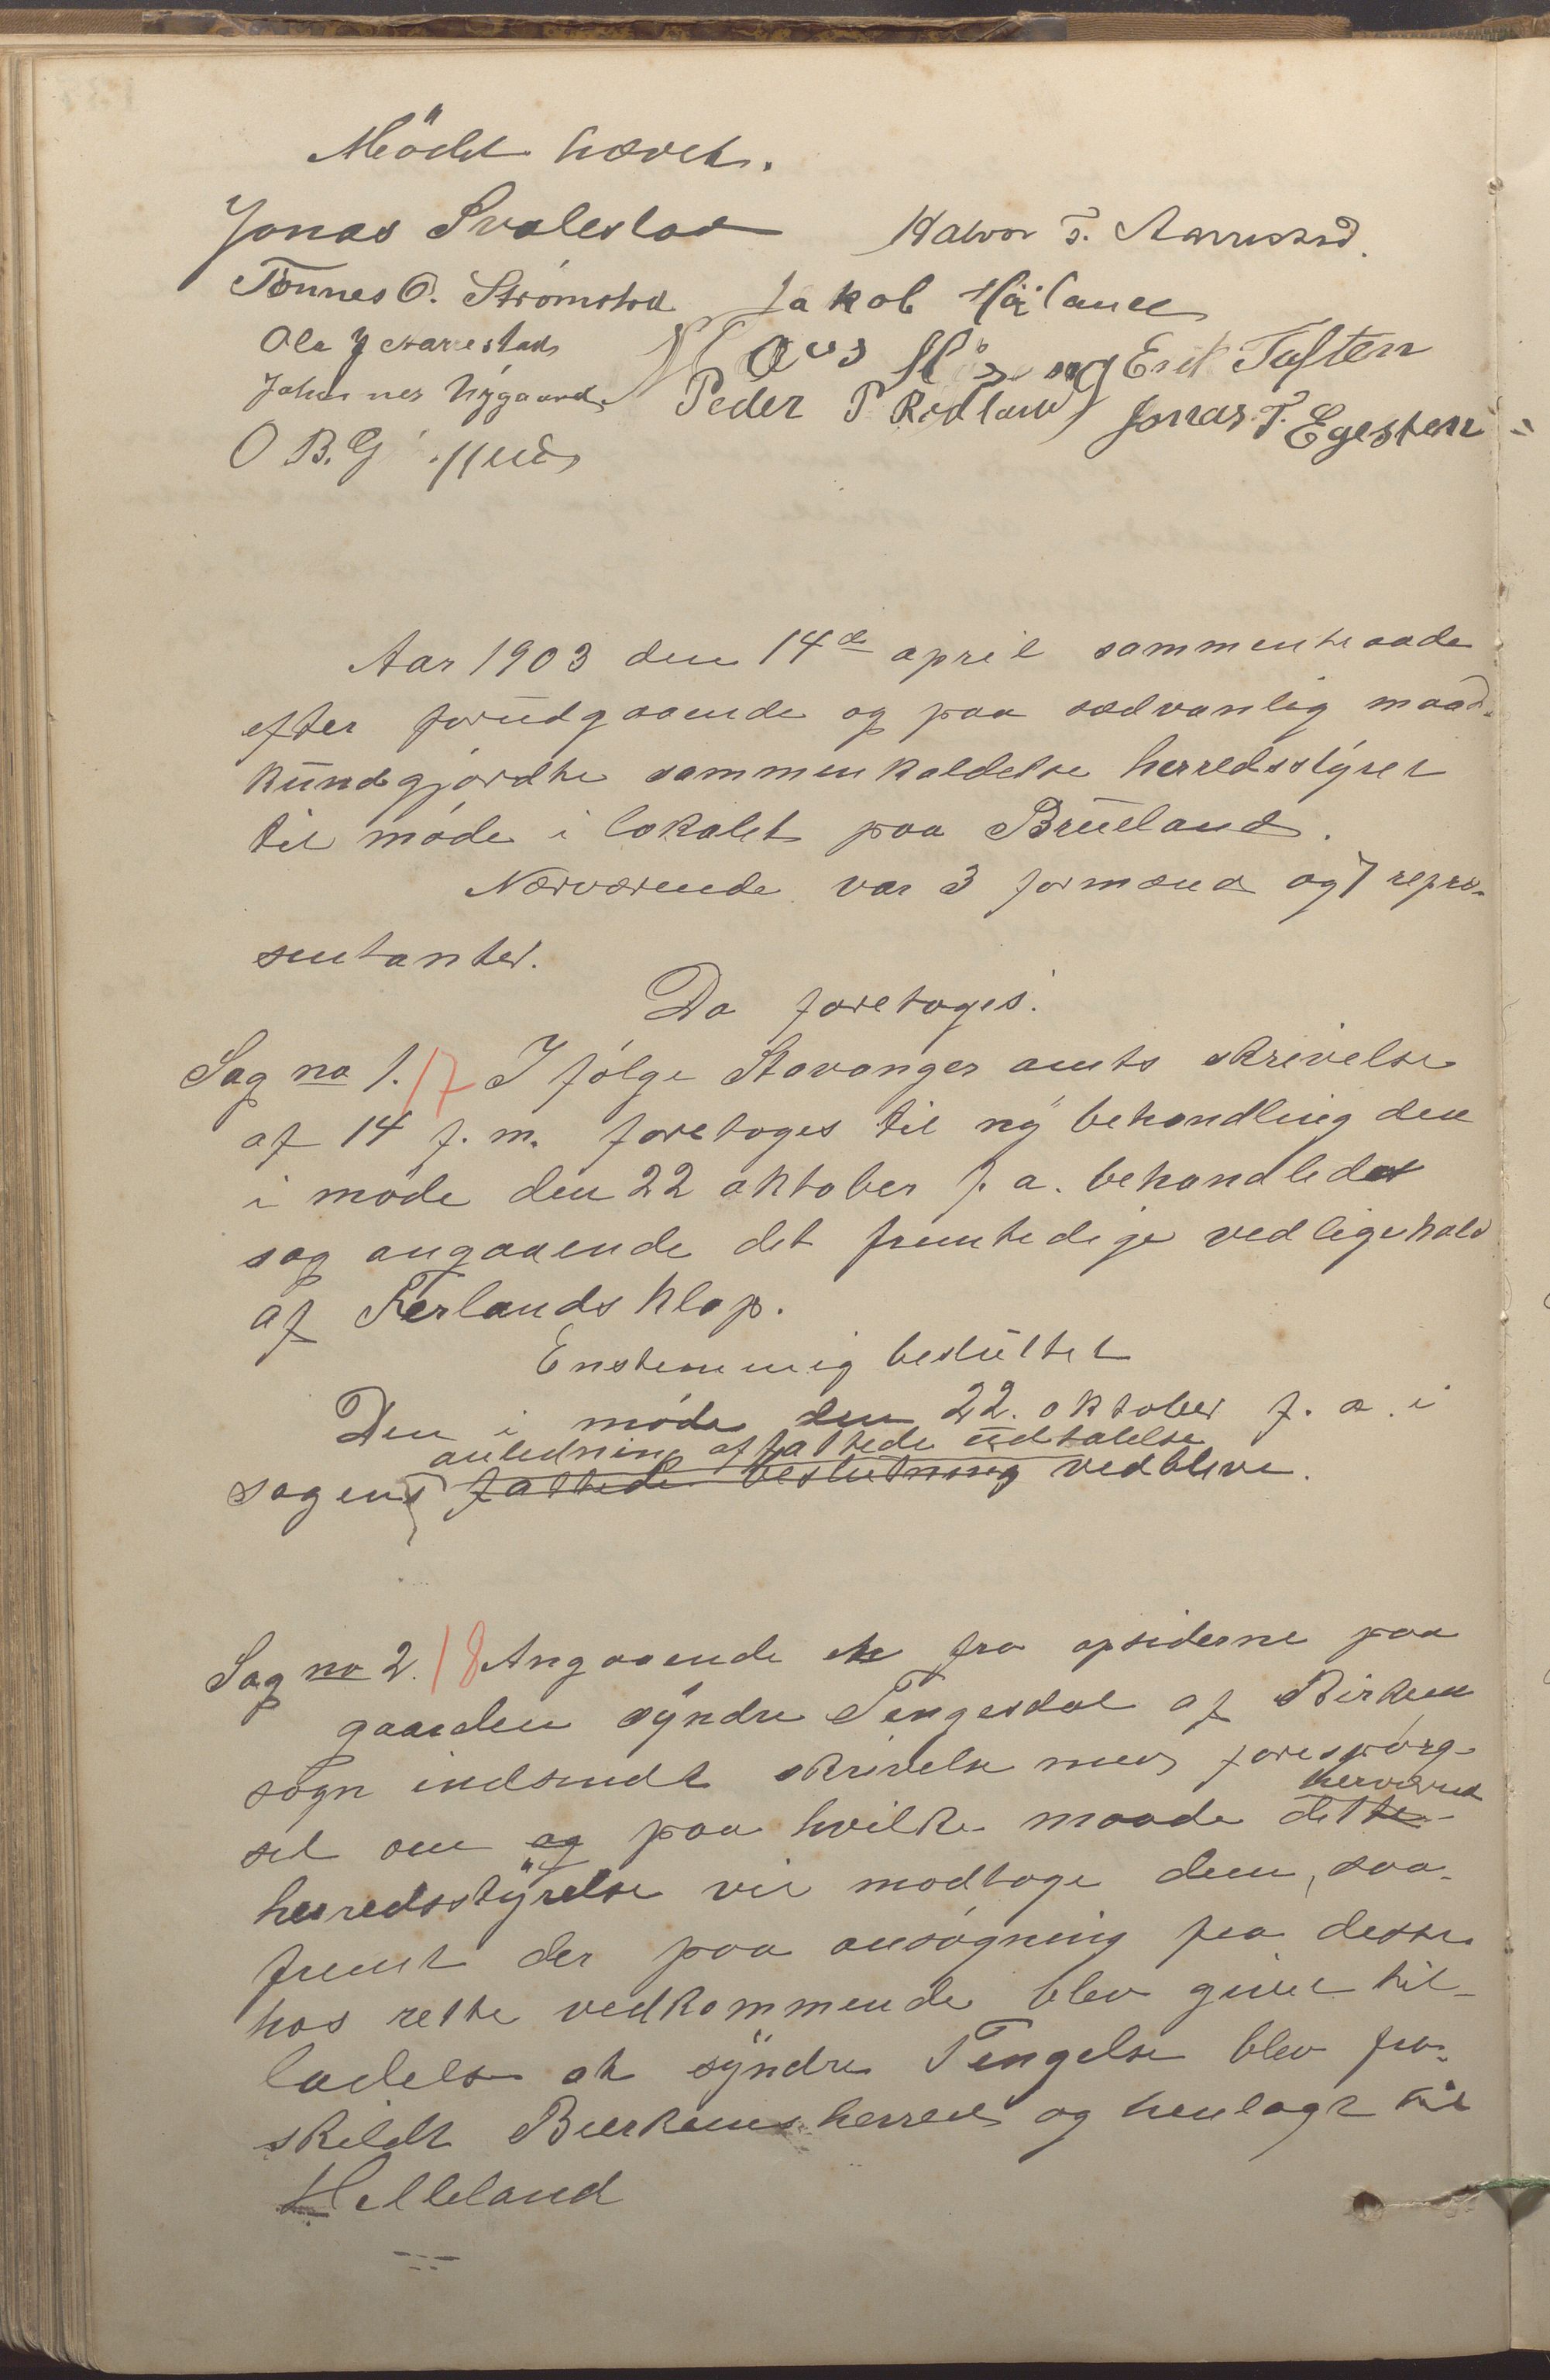 Mödet hævet.
Jonas Svalestad Halvor T. Aarrestad.
Tønnes O. Strømstad Jakob Häiland
Ole J Aarrestad
Erik Toften
Johannes Nygaard Peder P Redland Jonas T. Egesten
O B. G
Aar 1903 den 14de april sammentraadte
efter forudgaaende og paa sædvanlig maade
kundgjordte sammenkaldelse herredsstyret
til møde i lokalet paa Brueland.
Nærværende var 3 formænd og 7 repræ-
sentanter.
Da foretoges:
Sag no 1. 17 I følge Stavanger amts skrivelse
af 14 f. m. foretoges til ny behandling den
i møde den 22 oktober f. a. behandlede
sag angaaende det fremtidige vedligehold
af Terlands klop.
Enstemmig besluttet
Den i møde den 22. oktober f. a. i
anledning affattede udtalelse
sagens fattede beslutning vedblive.
Sag no 2. 18 Angaaende en fra opsiderne paa
gaarden syndre Tengesdal af Birkem
sogn indsendt skrivelse med forespørg-
herværende
sel om og paa hvilke maade dette
herredsstyrelse vil modtage dem, saa-
fremt der paa ansøgning fra disse
hos rette vedkommende blev givet til-
ladelse at syndre Tengelse blev fra-
skildt Bierkems herred og henlagt til
Helleland